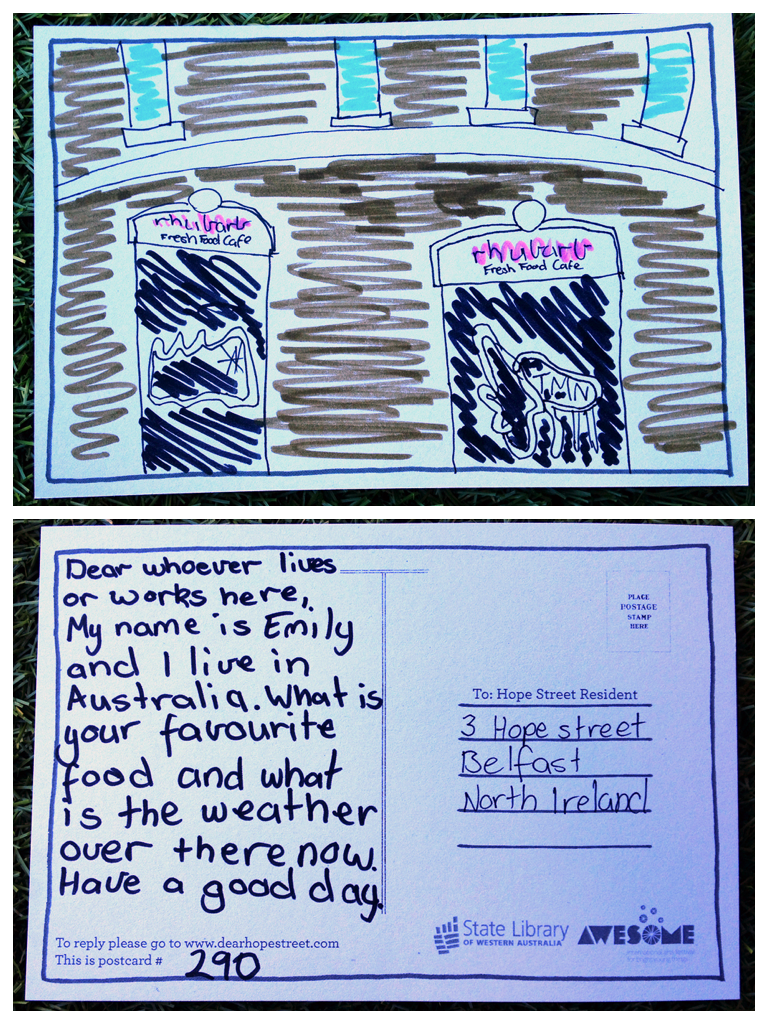 rhubarb
Fresh Food Cafe
rhubarb
Fresh Food Cafe
TMN
Dear whoever lives
or works here,
My name is Emily
and I live in
Australia. What is
your favourite
food and what
is the weather
over there now.
Have a good day.
To reply please go to www.dearhopestreet.com
This is postcard # 290
PLACE
POSTAGE
STAMP
HERE
To: Hope Street Resident
3 Hope street
Belfast
North Ireland
State Library
OF WESTERN AUSTRALIA
AWESOME